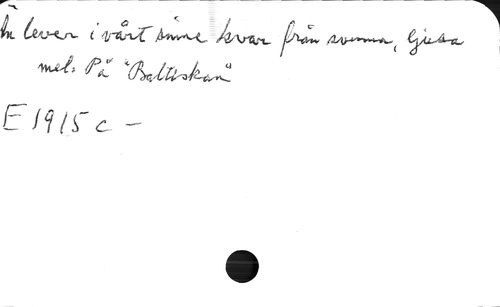 Än lever i vårt sinne kvar från svunna, ljusa
mel. På "Baltiskan"
E 1915 c -